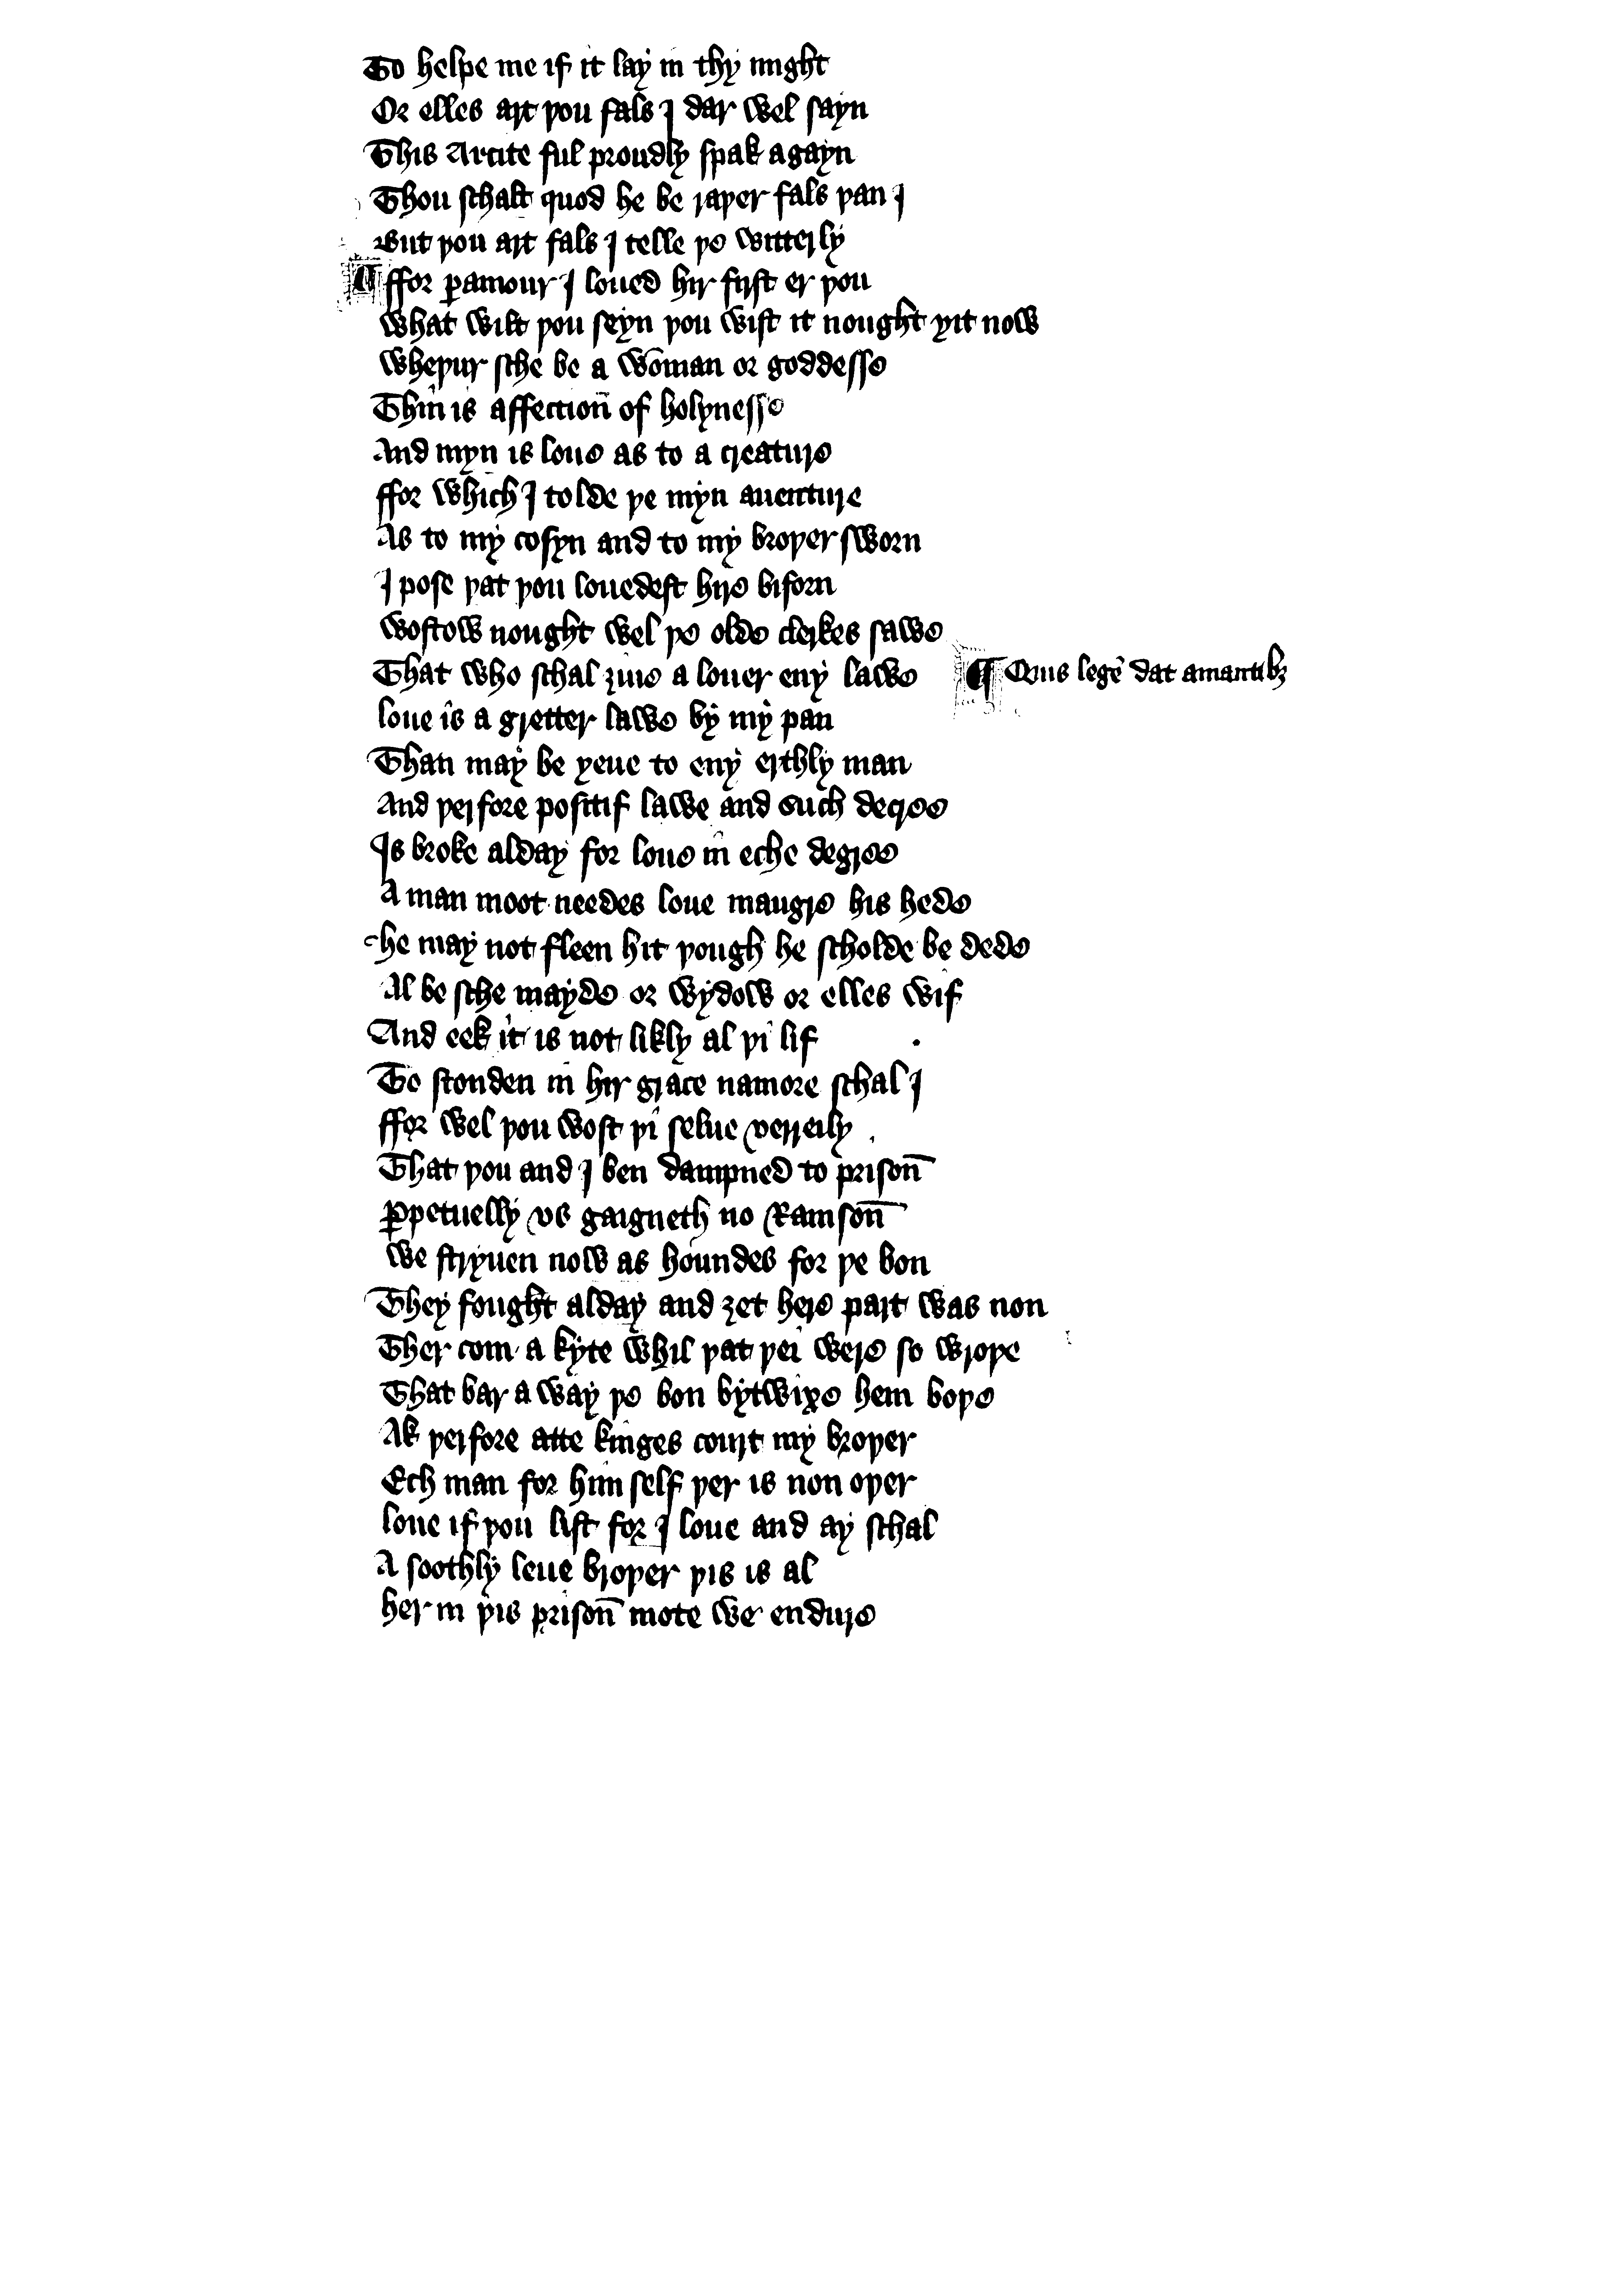 To helpe me if it lay in thy might
Or elles art þou fals I dar wel sayn
This Arcite ful proudly spak agayn
Thou schalt quod he be raþer fals þan I
But þou art fals I telle þe witterly
¶ ffor ꝑamour I loued hir first er þou
What wilt þou seyn þou wist it nought ȝit now
Wheþur sche be a wōman or goddesse
Thin is affeccioun̄ of holynesse
And myn is loue as to a creature
ffor which I tolde þe myn auenture
As to my cosyn and to my broþer sworn
I pose þat þou louedest hire biforn
Wostow nought wel þe olde clerkes sawe
That who schal ȝiue a louer eny lawe
¶ Quis legē dat amantibꝫ
loue is a gretter lawe by my pan
Than may be ȝeue to eny erthly man
And þerfore positif lawe and such decree
Is broke alday for loue in eche degree
A man moot needes loue maugre his hede
he may not fleen hit þough he scholde be dede
Al be sche mayde or wydow or elles wif
And eek it is not likly al þi lif
To stonden in hir grace namore schal I
ffor wel þou wost þi selue verreily
That þou and I ben dampned to prison̄
Ꝑpetuelly vs gaigneth no Ramson̄
We stryuen now as houndes for þe bon
They fought alday and ȝet here part was non
Ther com a kyte whil þat þei were so wroþe
That bar a way þe bon bytwixe hem boþe
Ak þerfore atte kinges court my broþer
Ech man for him self þer is non oþer
loue if þou list for I loue and ay schal
A soothly leue broþer þis is al
her in þis prison̄ mote we endure